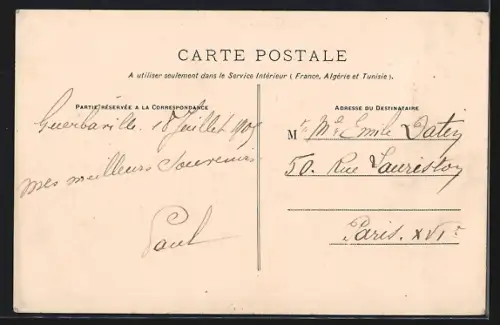 CARTE POSTALE
A utiliser seulement dans le Service Intérieur (France, Algérie et Tunisie).
PARTIE RÉSERVÉE A LA CORRESPONDANCE
Guerbaville 18 Juillet 1905
mes meilleurs Souvenirs
Paul
ADRESSE DU DESTINATAIRE
Mr & Me Emile
50. Rue Lauriston
Paris. XVIe